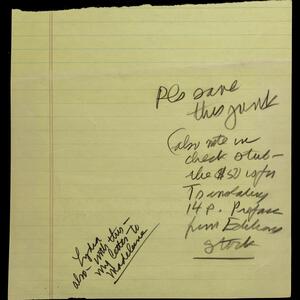 Pls save
this junk
(also note in
check stub -
the $50 is for
Translating
14 p. Preface
from Editions
Stock
Lydia
also - note this -
my letter to
Madeleine